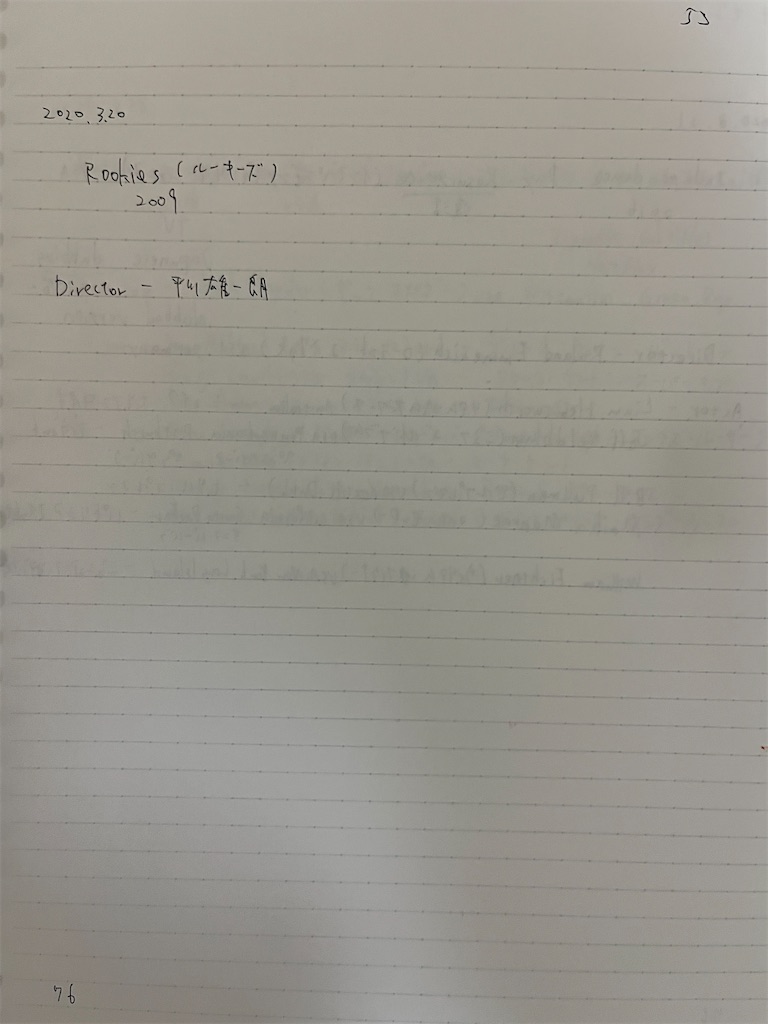 JJ
2020.3.20
Rookies (ルーキーズ)
2009
Director - 平川雄一朗
76